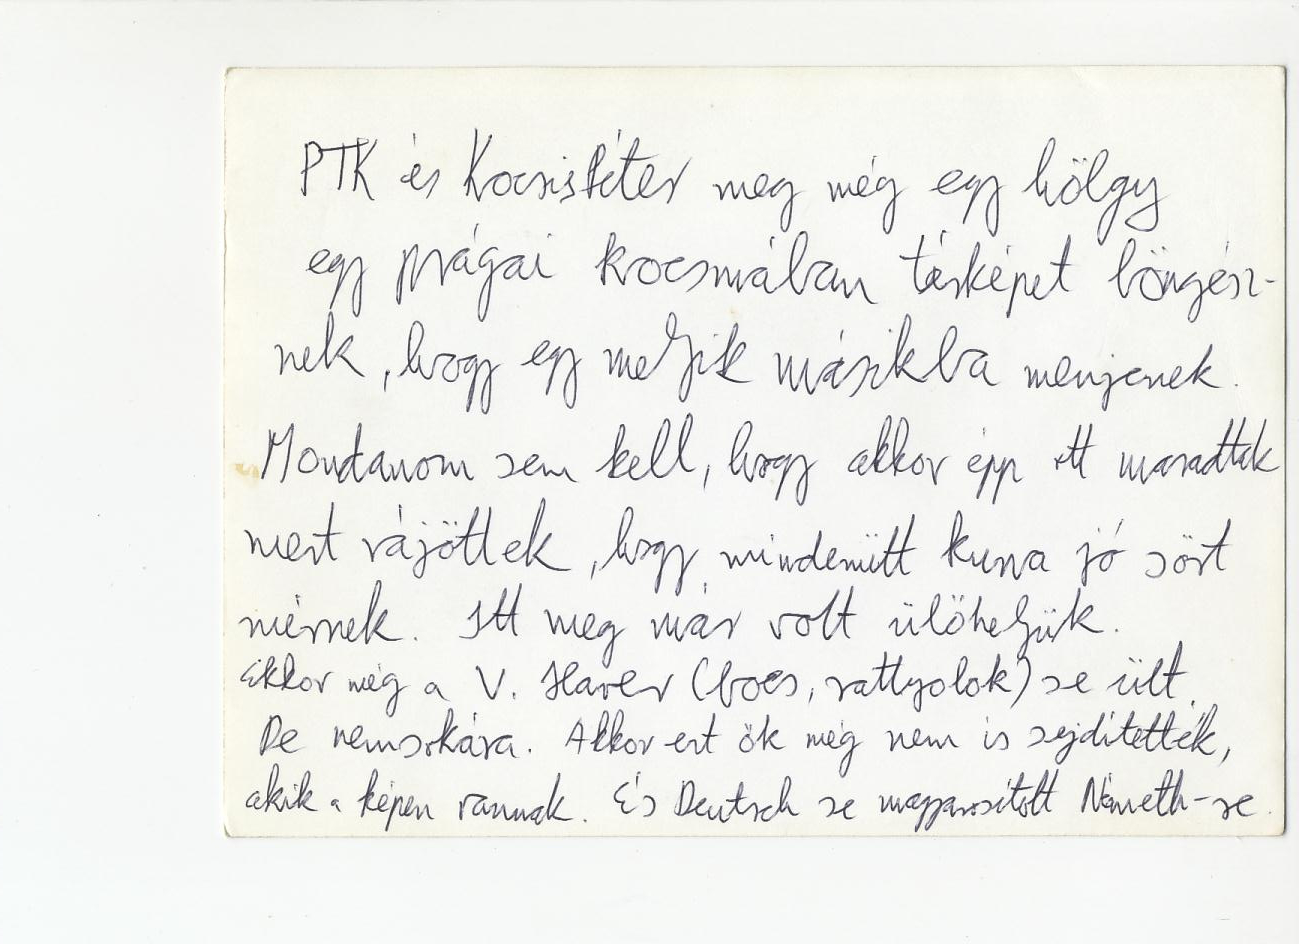 PTK és Kocsis Péter meg még egy hölgy
egy prágai kocsmában térképet böngész-
nek, hogy egy meljik másikba menjenek.
Mondanom sem kell, hogy akkor épp ott maradtak
mert rájöttek, hogy mindenütt kurva jó sört
mérnek. Itt meg már volt ülőheljük.
Ekkor még a V. Havel (bocs, rattyolok) se ült
De nemsokára. Akkor ezt ők még nem is sejdítették,
akik a képen vannak. És Deutsch se magyarosított Németh-re.